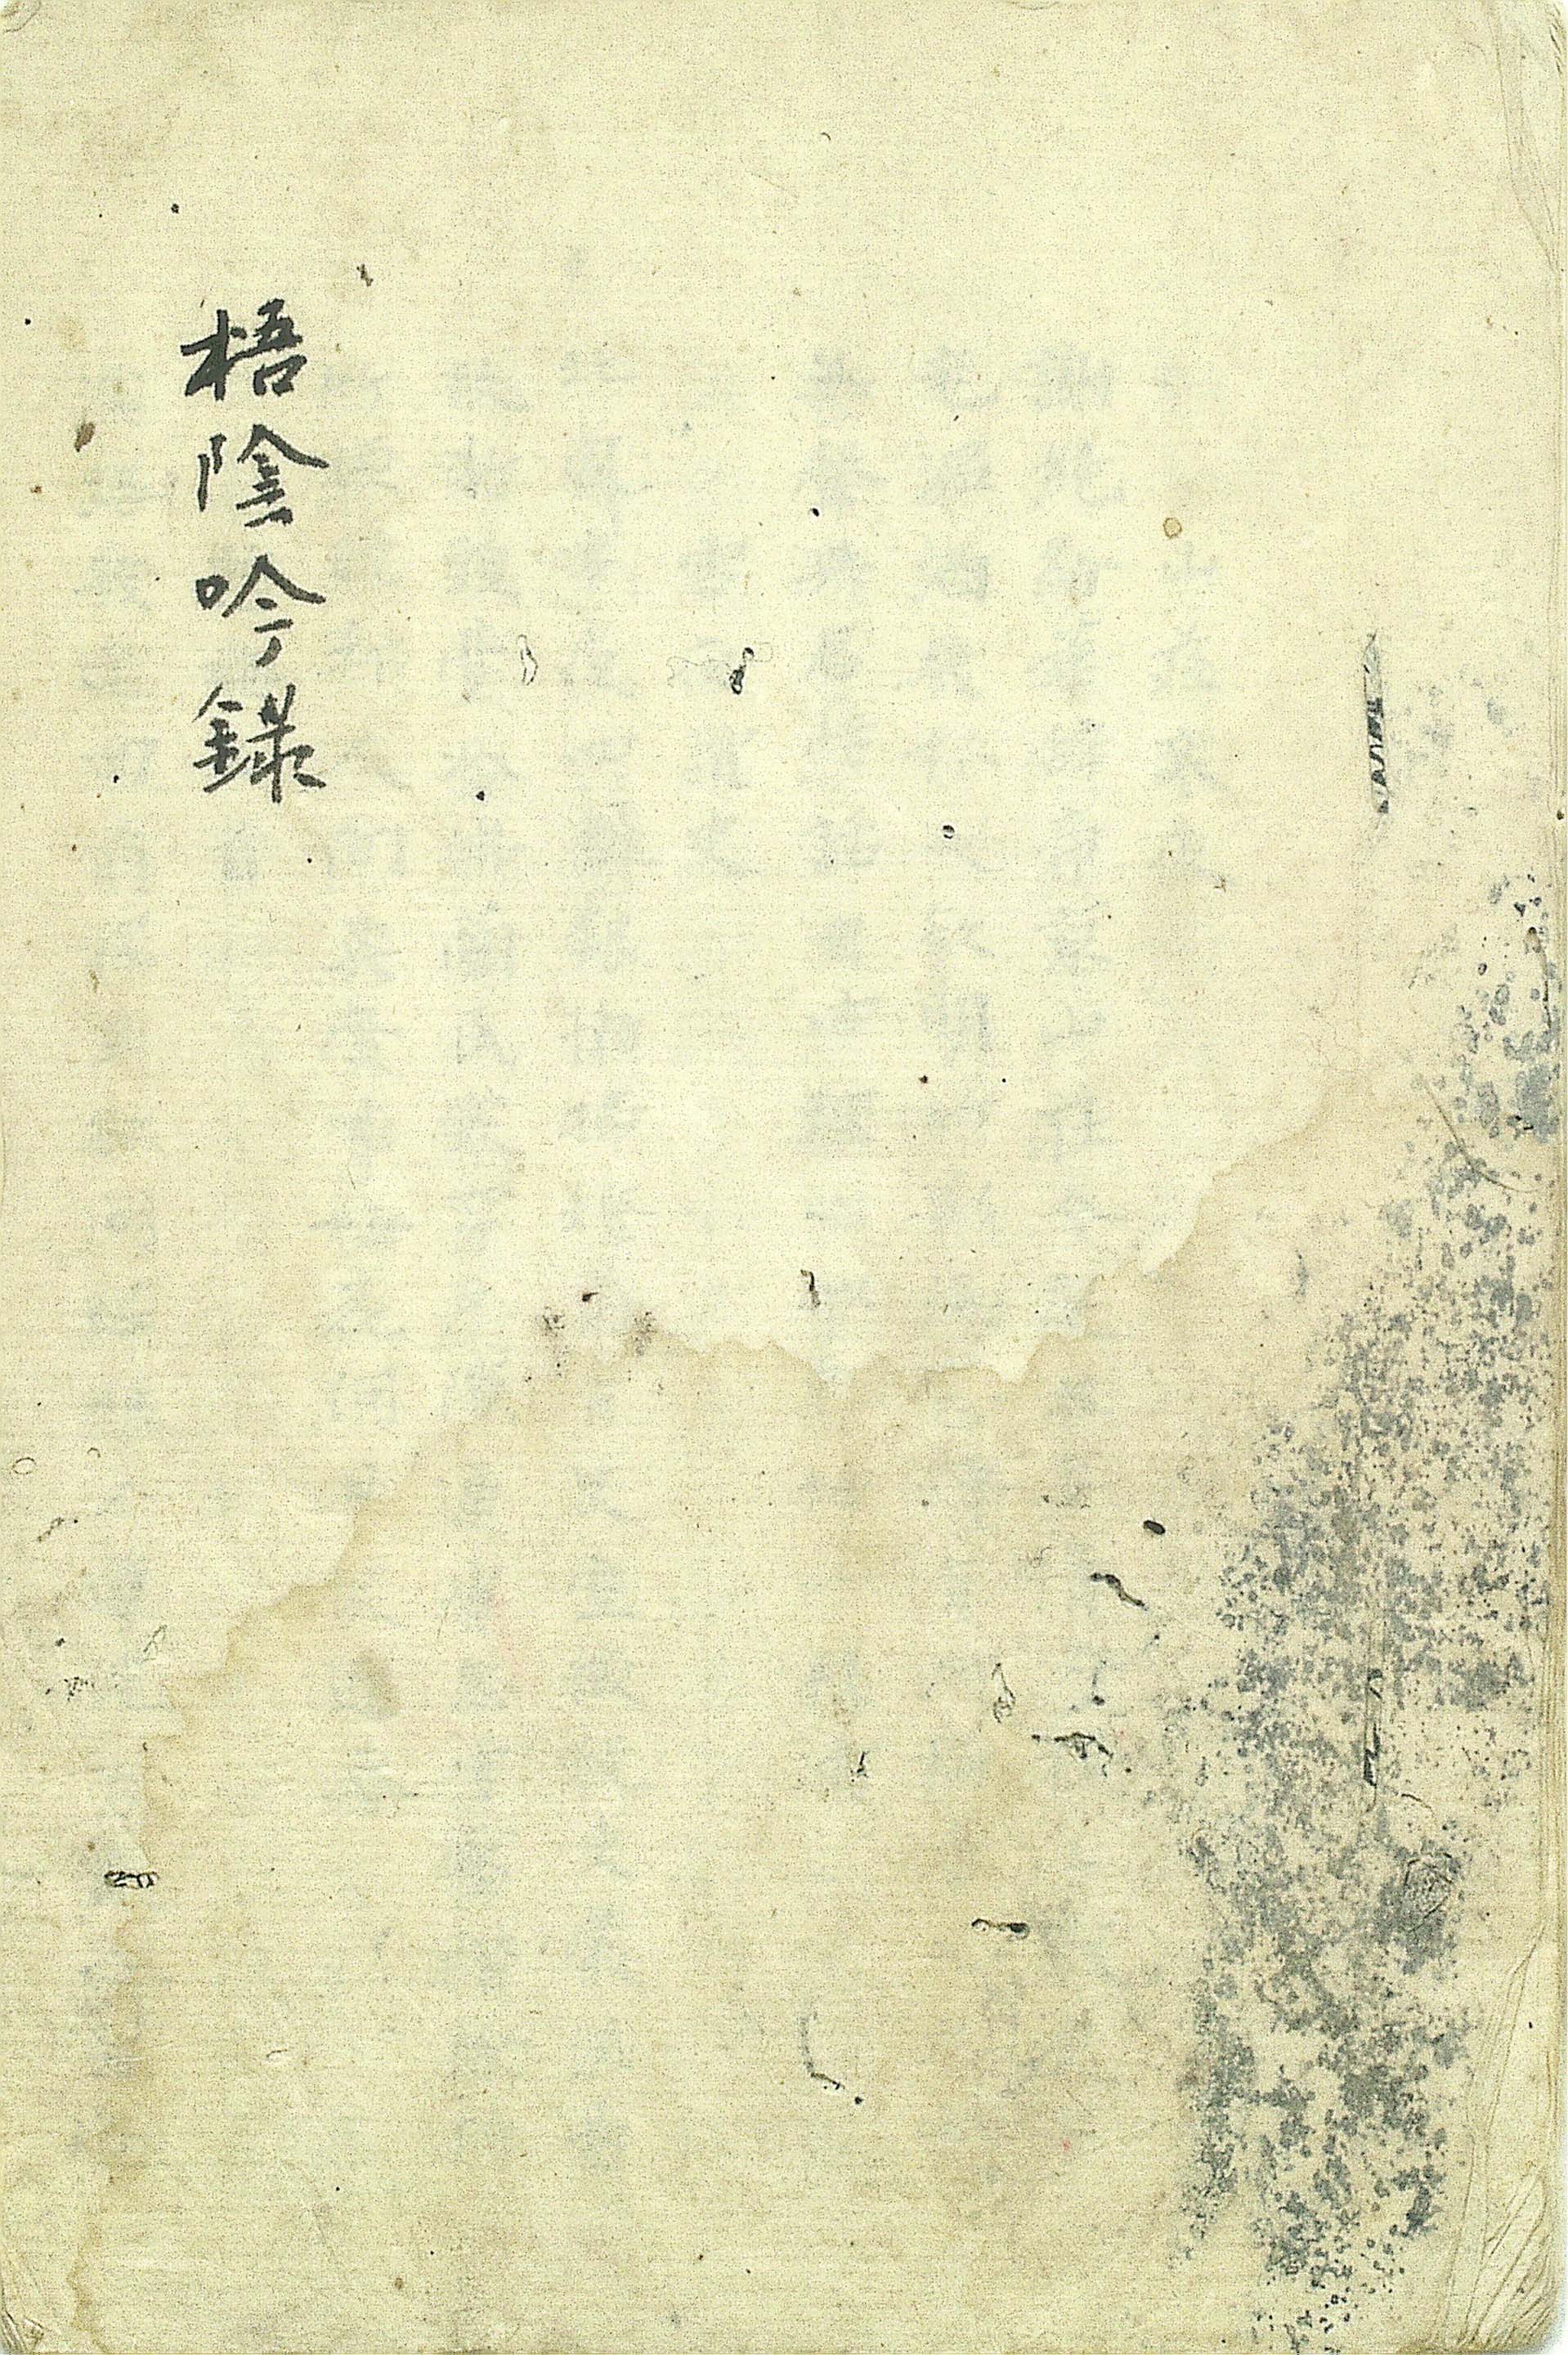 梧陰吟錄